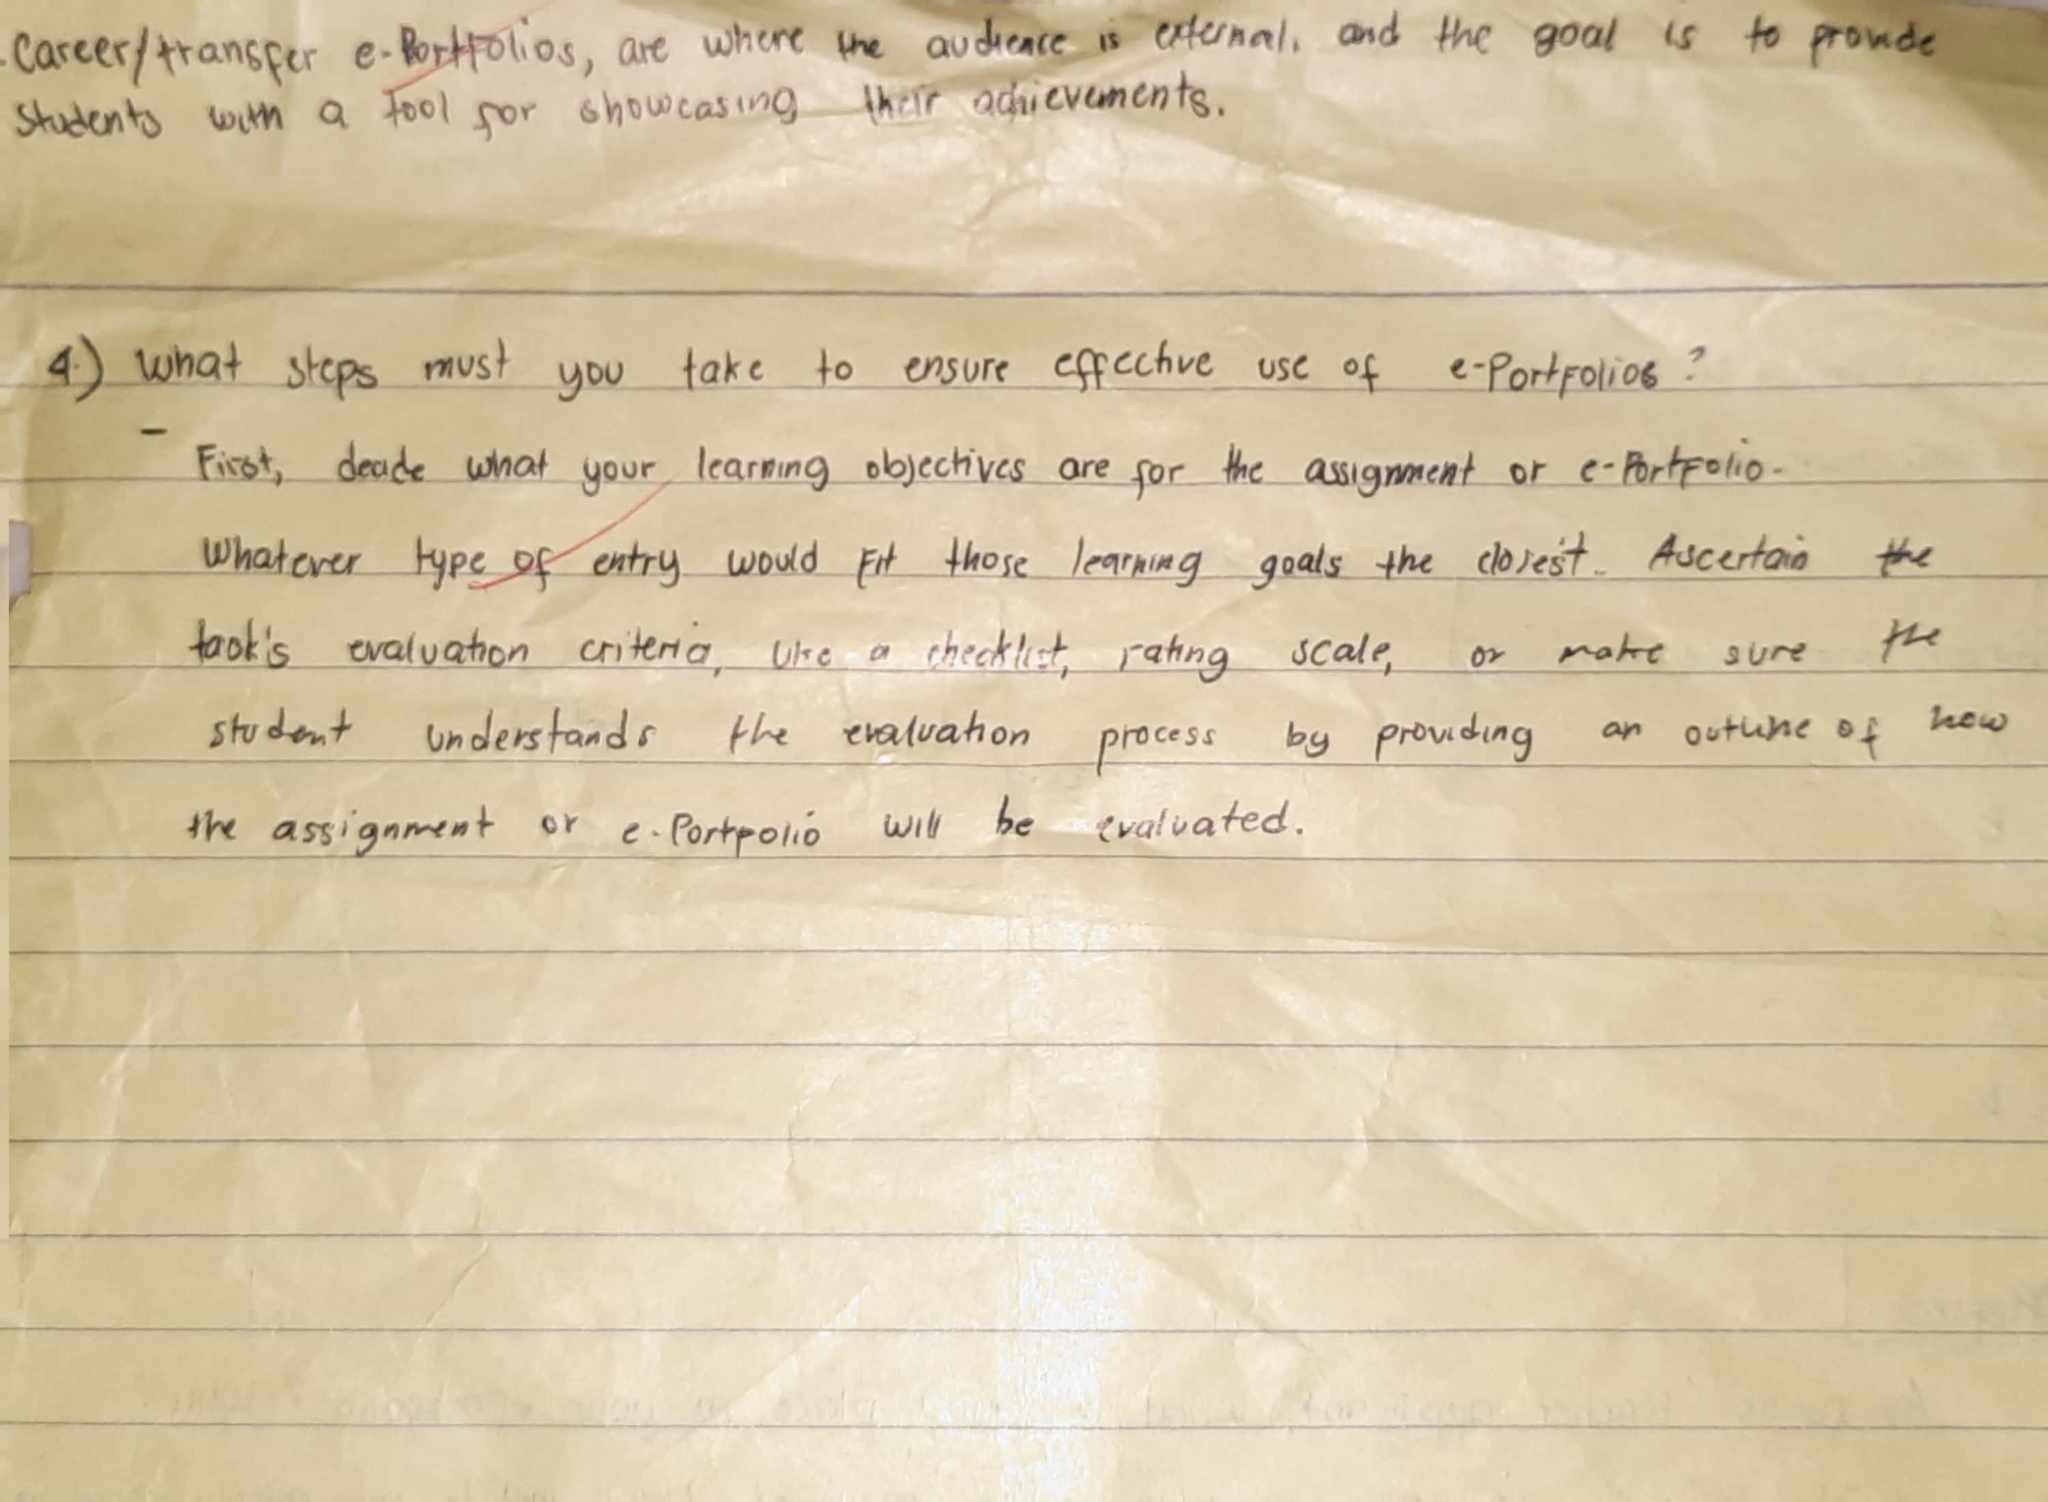 - Career/transfer e-Portfolios, are where the audience is external, and the goal is to provide
students with a tool for showcasing their achievements.
4.) What steps must you take to ensure effective use of e-Portfolios?
- First, decide what your learning objectives are for the assignment or e-Portfolio.
Whatever type of entry would fit those learning goals the closest. Ascertain the
task's evaluation criteria, Use a checklist, rating scale, or make sure the
student understands the evaluation process by providing an outline of how
the assignment or e-Portpolio will be evaluated.